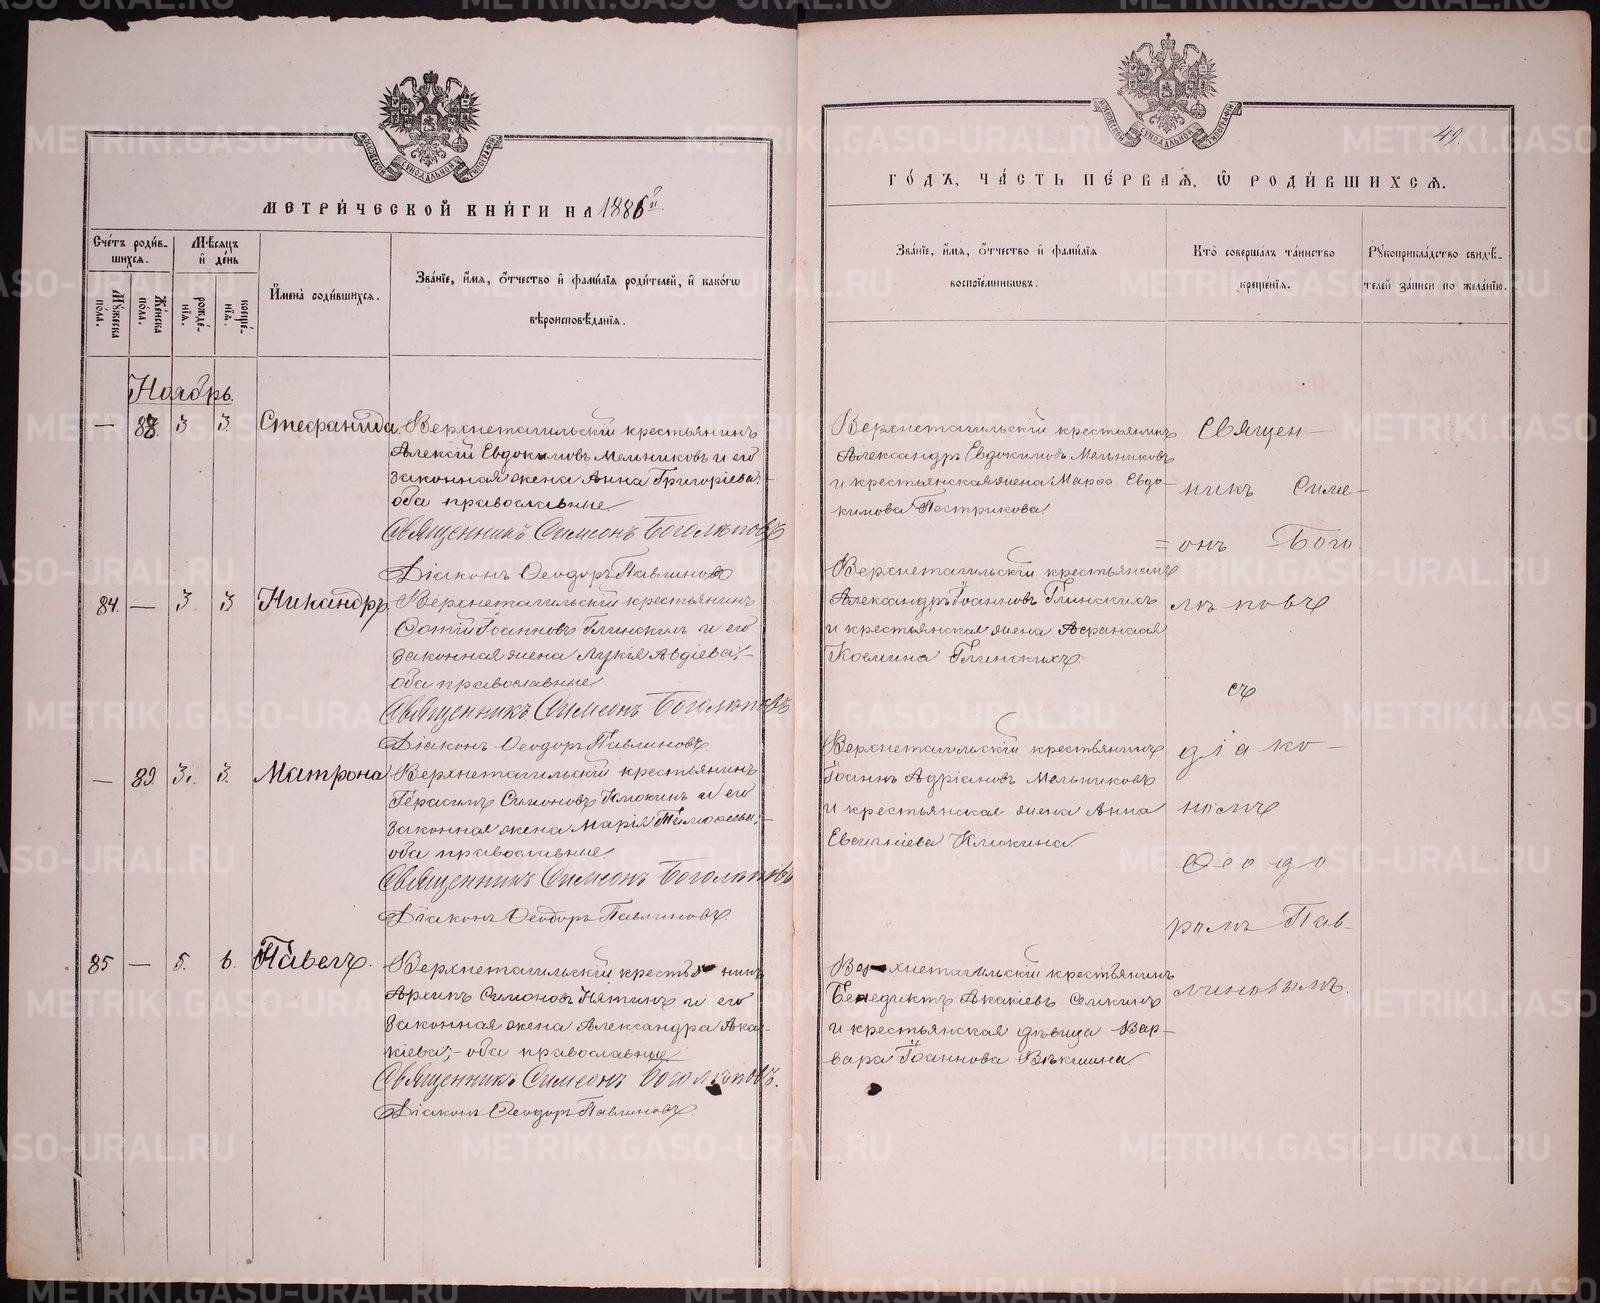 МОСКОВСКОЙ СѴНОДАЛЬНОЙ ТИПОГРАФІИ
МЕТРИ́ЧЕСКОЙ КНИ́ГИ НА 1886й
Сче́тъ роди́в-
шихся.
Мꙋ́жеска
по́ла.
Же́нска
по́ла.
Мѣ́сяцъ
и҆ де́нь
рожде́-
нїя.
креще́-
нїя.
И҆мена̀ роди́вшихся.
Зва́нїе, и҆́мя, ѻ҆́тчество и҆ фами́лїя роди́телей, и҆ како́гѡ
вѣроисповѣ́данїя.
Ноябрь.
— 88. 3 3. Стефанида
Верхнетагильскій крестьянинъ
Алексій Евдокимовъ Мельниковъ и его
законная жена Анна Григоріева,-
оба православные
Священникъ Симеонъ Боголѣповъ
Діаконъ Ѳеодоръ Павлиновъ
84. — 3 3 Никандръ
Верхнетагильскій крестьянинъ
Іоанновъ Глинскихъ и его
законная жена Лукія Авдіева,-
оба православные
Священникъ Симеонъ Боголѣповъ
Діаконъ Ѳеодоръ Павлиновъ
— 89. 3. 3. Матрона
Верхнетагильскій крестьянинъ
Герасимъ Симоновъ Клюкинъ и его
законная жена Марія Тимоѳеева,-
оба православные
Священникъ Симеонъ Боголѣповъ
Діаконъ Ѳеодоръ Павлиновъ
85 — 5. 6. Павелъ.
Верхнетагильскій крестьянинъ
Архипъ Симоновъ и его
законная жена Александра Ака-
кіева,- оба православные
Священникъ Симеонъ Боголѣповъ.
Діаконъ Ѳеодоръ Павлиновъ.
МОСКОВСКОЙ СѴНОДАЛЬНОЙ ТИПОГРАФІИ
49.
ГО́ДЪ, ЧА́СТЬ ПЕ́РВАЯ, Ѡ҆ РОДИ́ВШИХСЯ.
Зва́нїе, и҆́мя, ѻ҆́тчество и҆ фами́лїя
воспрїе́мникѡвъ.
Кто̀ соверша́лъ та́инство
креще́нїя.
Рꙋкоприкла́дство свидѣ́-
телей за́писи по жела́нїю.
Верхнетагильскій крестьянинъ
Александръ Евдокимовъ Мельниковъ
и крестьянская жена Марѳа Евдо-
кимова Пестрикова.
Верхнетагильскій крестьянинъ
Александръ Іоанновъ Глинскихъ
и крестьянская жена Аѳанасія
Козмина Глинскихъ.
Верхнетагильскій крестьянинъ
Іоаннъ Адріановъ Мельниковъ
и крестьянская жена Анна
Евгеніева Клюкина
Верхнетагильскій крестьянинъ
Бенедиктъ Акакіевъ
и крестьянская дѣвица Вар-
вара Іоаннова Вѣкшина
Священ-
никъ Симе-
=онъ Бого
лѣповъ
съ
діако-
номъ
Ѳеодо
ромъ Пав-
линовымъ.
METRIKI.GASO-URAL.RU